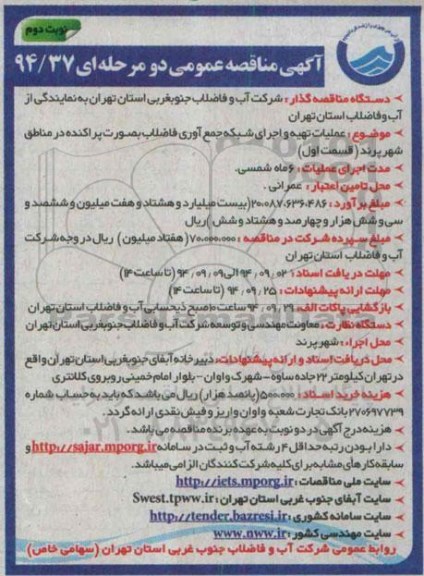 نوبت دوم
آگهی مناقصه عمومی دو مرحله‌ای ۹۴/۳۷
دستگاه مناقصه گذار : شرکت آب و فاضلاب جنوبغربی استان تهران به نمایندگی از
آب و فاضلاب استان تهران
موضوع : عملیات تهیه و اجرای شبکه جمع آوری فاضلاب بصورت پراکنده در مناطق
شهر پرند ( قسمت اول)
مدت اجرای عملیات : ۶ ماه شمسی.
محل تامین اعتبار : عمرانی .
مبلغ برآورد : ۲۰،۰۸۷،۶۳۶،۴۸۶(بیست میلیارد و هشتاد و هفت میلیون و ششصد و
سی و شش هزار و چهارصد و هشتاد و شش )ریال
مبلغ سپرده شرکت در مناقصه : ۷۰،۰۰۰،۰۰۰( هفتاد میلیون ) ریال در وجه شرکت
آب و فاضلاب استان تهران
مهلت دریافت اسناد : ۹۴/۰۹/۰۲ الی ۹۴/۰۹/۰۹ (تا ساعت ۱۴)
مهلت ارائه پیشنهادات : ۹۴/۰۹/۲۵ (تا ساعت ۱۴)
بازگشایی پاکات الف، ب، ج : ۹۴ ساعت ۱۰صبح ذیحسابی آب و فاضلاب استان تهران
دستگاه نظارت : معاونت مهندسی و توسعه شرکت آب و فاضلاب جنوبغربی استان تهران
محل اجراء : شهر پرند
محل دریافت اسناد و ارائه پیشنهادات: دبیرخانه آبفای جنوبغربی استان تهران واقع
در تهران کیلومتر ۲۳ جاده ساوه - شهرک واوان - بلوار امام خمینی روبروی کلانتری
هزینه خرید اسناد : ۵۰۰،۰۰۰(پانصد هزار) ریال می باشد که باید به حساب شماره
۲۷۰۶۹۷۷۳۹ بانک تجارت شعبه واوان واریز و فیش نقدی ارائه گردد .
هزینه درج آگهی در دو نوبت به عهده برنده مناقصه می باشد .
دارا بودن رتبه حداقل ۴ رشته آب و ثبت در سامانه http://sajar.mporg.ir و
سابقه کار های مشابه برای کلیه شرکت کنندگان الزامی میباشد.
سایت ملی مناقصات : http://iets.mporg.ir
سایت آبفای جنوب غربی استان تهران : Swest.tpww.ir
سایت سامانه کشوری : http://tender.bazresi.ir
سایت مهندسی کشور : www.nww.ir
روابط عمومی شرکت آب و فاضلاب جنوب غربی استان تهران (سهامی خاص)